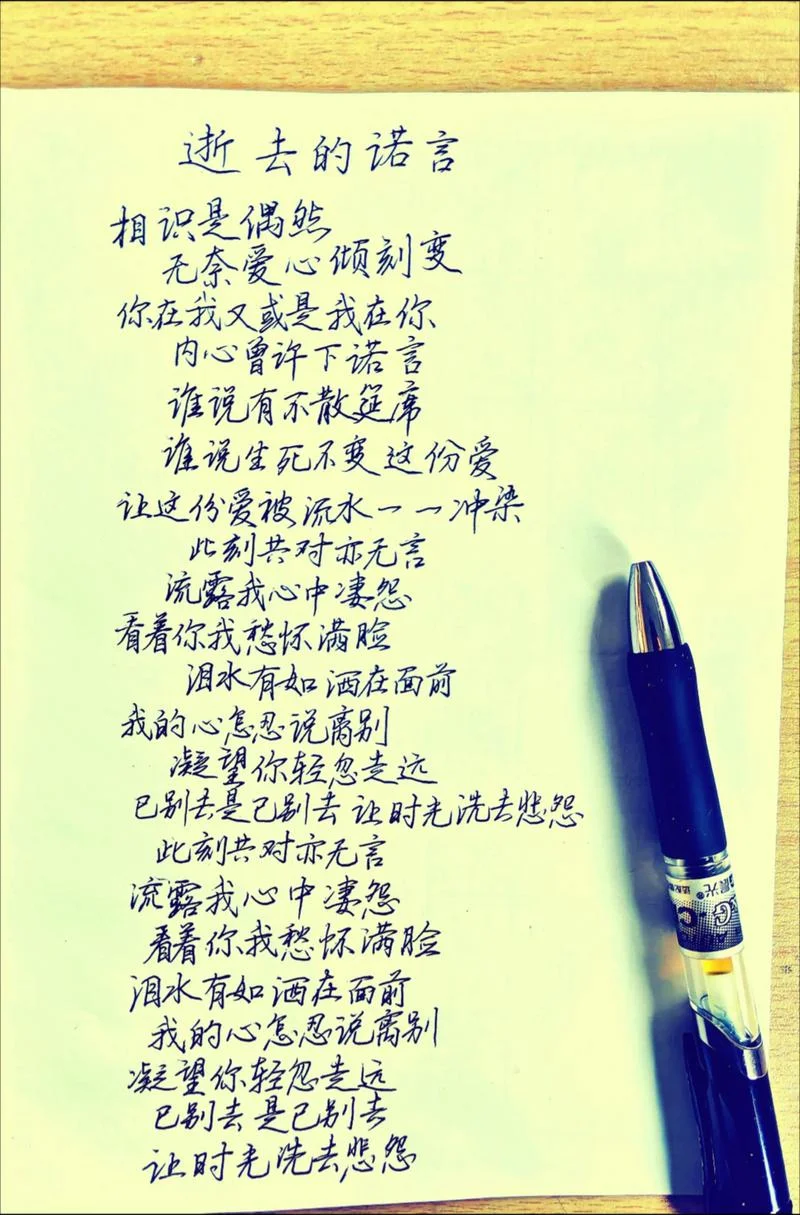 逝去的诺言
相识是偶然
无奈爱心倾刻变
你在我又或是我在你
内心曾许下诺言
谁说有不散筵席
谁说生死不变这份爱
让这份爱被流水一一冲染
此刻共对亦无言
流露我心中凄怨
看着你我愁怀满脸
泪水有如洒在面前
我的心怎忍说离别
凝望你轻忽走远
已别去是已别去 让时光洗去悲怨
此刻共对亦无言
流露我心中凄怨
看着你我愁怀满脸
泪水有如洒在面前
我的心怎忍说离别
凝望你轻忽走远
已别去是已别去
让时光洗去悲怨
晨光®